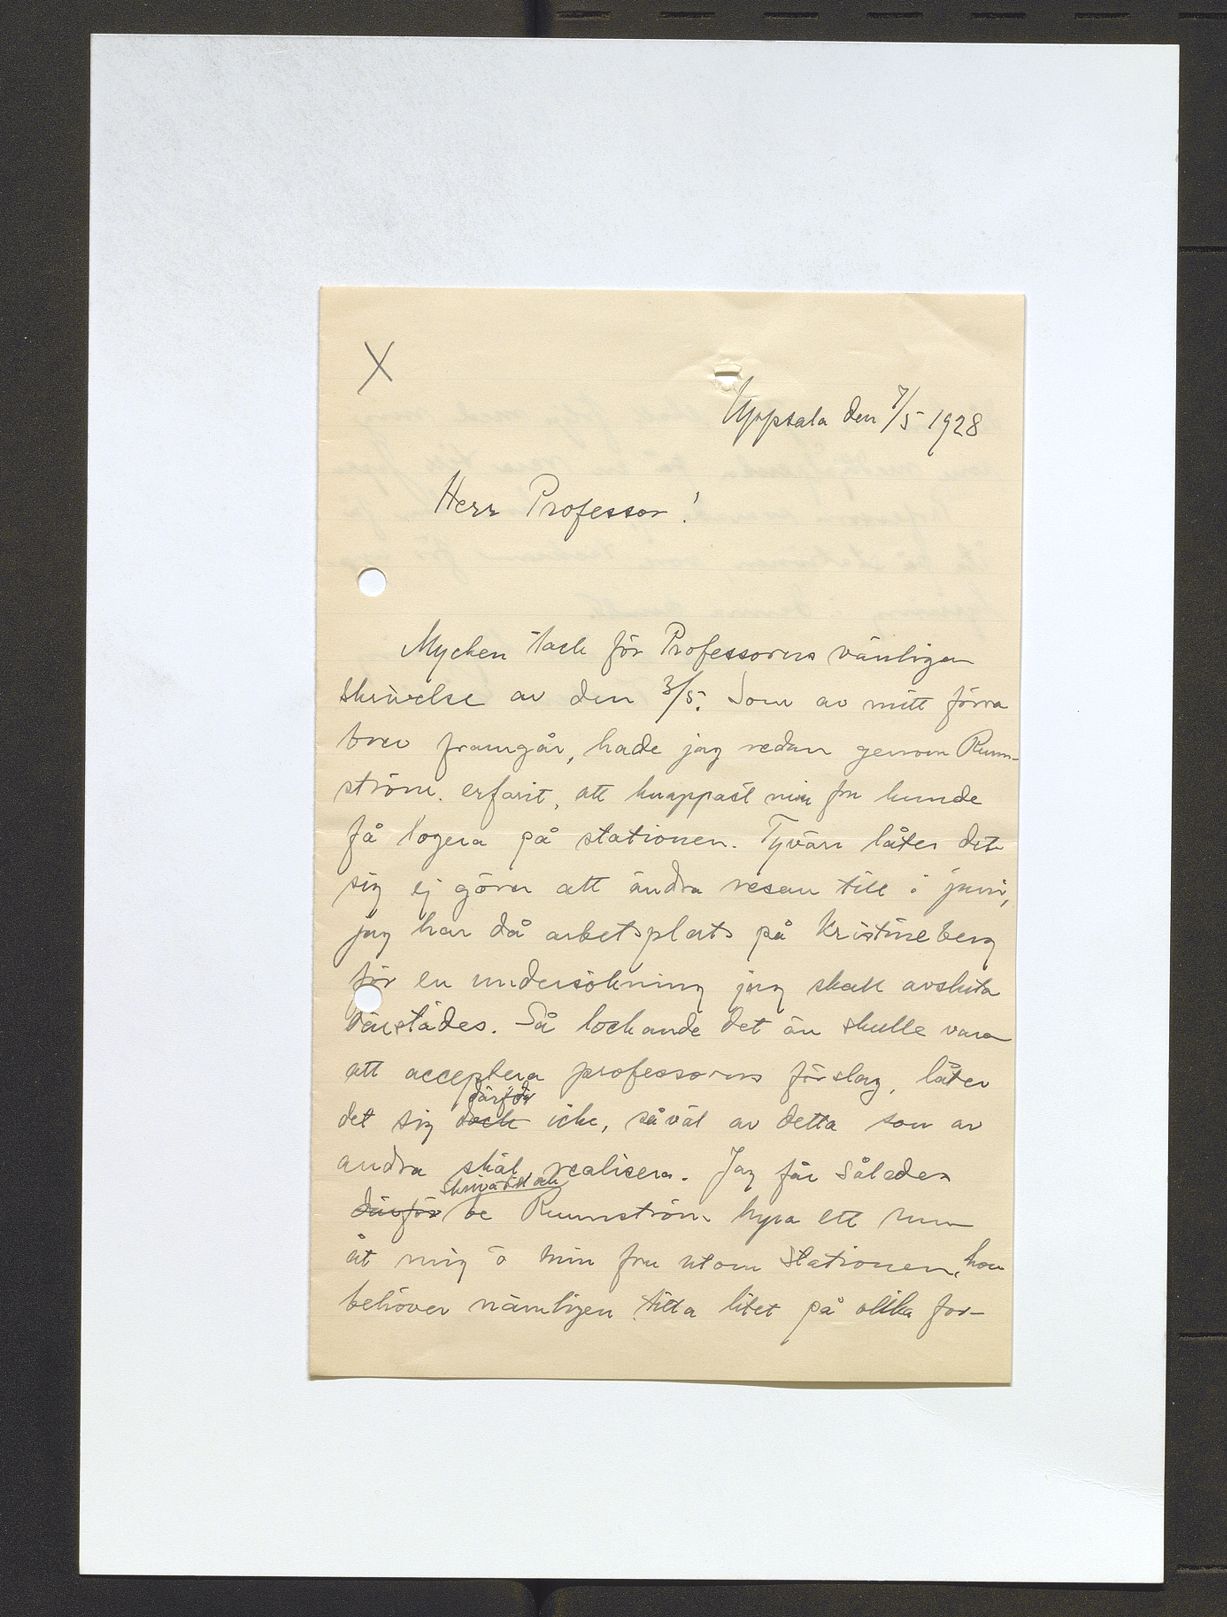 X
Uppsala den 7/5 1928
Herr Professor!
Mycken tack för Professorns vänliga
skrivelse av den 3/5. Som av mitt förra
brev framgår, hade jag redan genom Runn-
ström erfarit, att knappast min fru kunde
få logera på stationen. Tyvärr låter det
sig ej göra att ändra resan till i juni,
jag har då arbetsplats på Kristineberg
för en undersökning jag skall avsluta
därstädes. Så lockande det än skulle vara
att acceptera professorns förslag, låter
därför
det sig dock icke, såväl av detta som av
andra skäl, realisera. Jag får således
skriva till och
därför be Runnström hyra ett rum
åt mig o min fru utom stationen, hon
behöver nämligen titta litet på olika for-